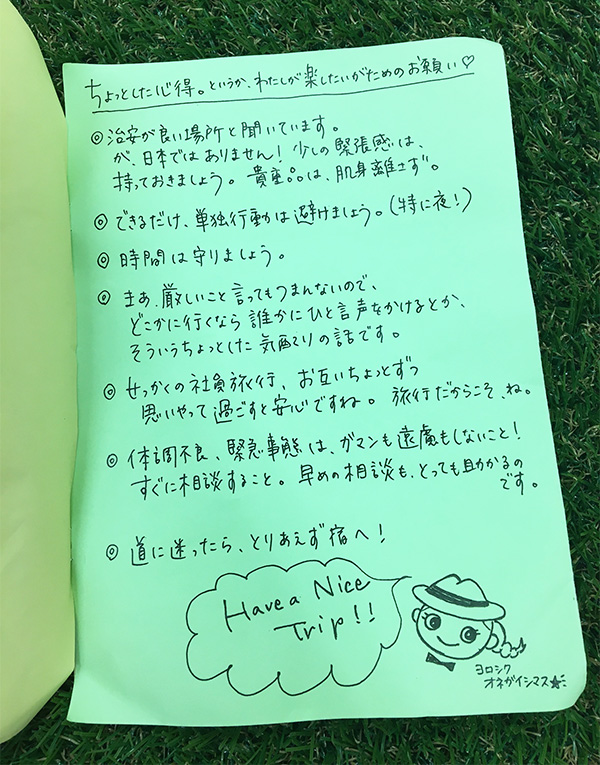 ちょっとした心得。というか、わたしが楽したいがためのお願い♡
◎ 治安が良い場所と聞いています。
が、日本ではありません！少しの緊張感は、
持っておきましょう。貴重品は、肌身離さず。
◎ できるだけ、単独行動は避けましょう。（特に夜！）
◎ 時間は守りましょう。
◎ まあ、厳しいこと言ってもつまんないので、
どこかに行くなら誰かにひと言声をかけるとか、
そういうちょっとした気配りの話です。
◎ せっかくの社員旅行、お互いちょっとずつ
思いやって過ごすと安心ですね。旅行だからこそ、ね。
◎ 体調不良、緊急事態は、ガマンも遠慮もしないこと！
すぐに相談すること。早めの相談も、とっても助かるの
です。
◎ 道に迷ったら、とりあえず宿へ！
Have a Nice
Trip!!
ヨロシク
オネガイシマス★